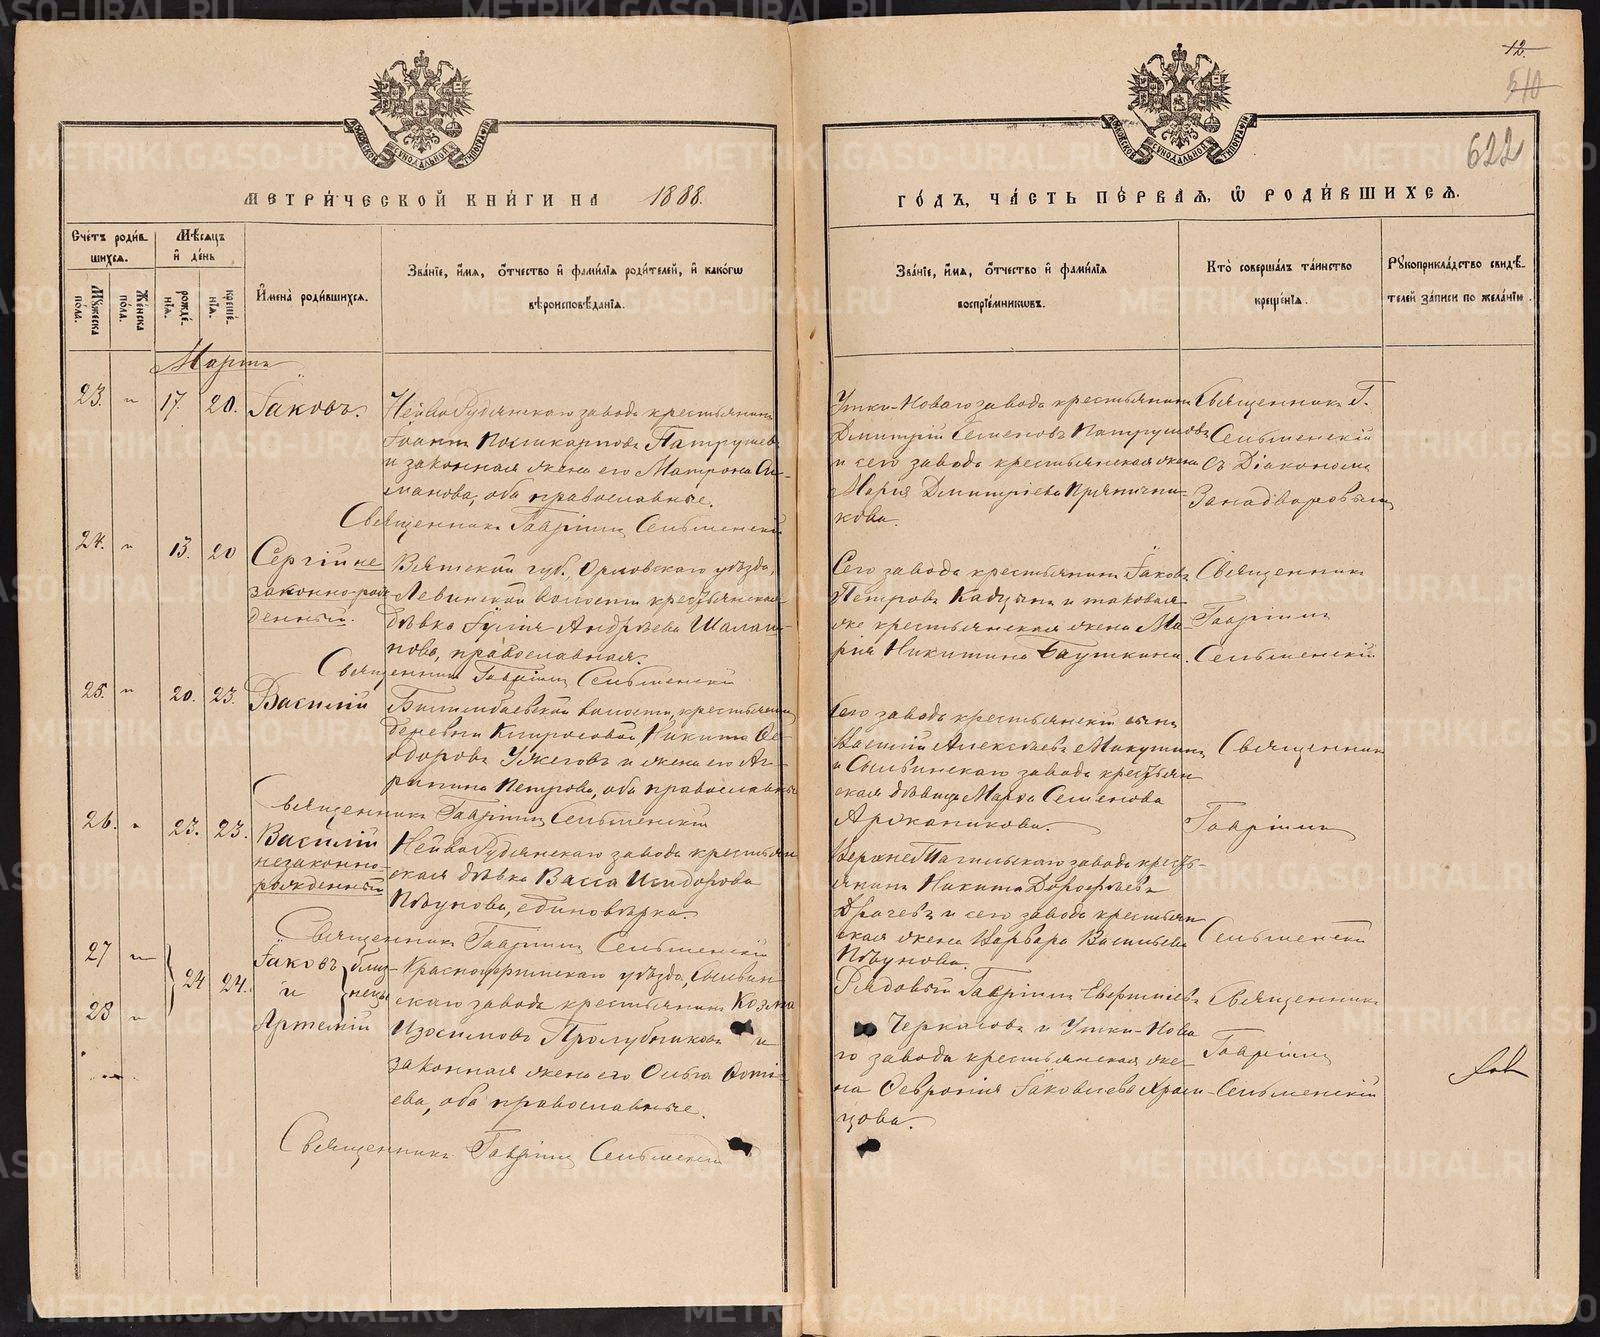 12
510
622
МЕТРИЧЕСКОЙ КНИГИ НА 1888.
ГОДЪ, ЧАСТЬ ПЕРВАЯ, Ѡ РОДИВШИХСЯ.
Счетъ родив-
шихся.
Мужеска пола.
Женска пола.
Мѣсяцъ
и день
рождe-
нія.
креще-
нія.
Имена родившихся.
Званіе, имя, отчество и фамилія родителей, и какогѡ
вѣроисповѣданія.
Званіе, имя, отчество и фамилія
воспріемниковъ.
Кто совершалъ таинство
крещенія.
Рукоприкладство свидѣ-
телей записи по желанію.
Мартъ
23. " 17. 20. Іаковъ.
Нейво Рудянскаго завода крестьянинъ
Іоаннъ Поликарповъ Патрушевъ
и законная жена его Матрона Си-
манова, оба православные.
Священникъ Гавріилъ Сельменскій
Утки-Новаго завода крестьянинъ
Дмитрій Семеновъ Патрушевъ
и сего завода крестьянская жена
Марія Дмитріева Прянични-
кова.
Священникъ Г.
Сельменскій
съ Діакономъ
Западворовымъ
24. " 13. 20 Сергій не
законно-рож
денный.
Вятской губ., Орловскаго уѣзда,
Левинской волости крестьянская
дѣвка Іулія Андреева Шала
нова, православная.
Священникъ Гавріилъ Сельменскій
Сего завода крестьянинъ Іаковъ
Петровъ и таковая
же крестьянская жена Ма-
рія Никитина Баушкина.
Священникъ
Гавріилъ
Сельменскій
25. " 20. 23. Василій
Билимбаевской волости, крестьянинъ
деревни Никита Ѳе-
одоровъ Ужеговъ и жена его Аг-
рипина Петрова, оба православные
Священникъ Гавріилъ Сельменскій
Сего завода крестьянскій сынъ
Василій Алексѣевъ Макушинъ
и Сылвинскаго завода крестьян
ская дѣвица Марѳа Семенова
Аржанникова.
Священникъ
Гавріилъ
Сельменскій
26. " 23. 23. Василій
незаконно-
рожденный
Нейво Рудянскаго завода крестьян
ская дѣвка Васса Исидорова
Пѣунова, единовѣрка.
Священникъ Гавріилъ Сельменскій
Верхне Тагильскаго завода кресть-
янинъ Никита Дороѳѣевъ
Драчевъ и сего завода крестьян
ская жена Варвара Васильева
Пѣунова.
27 " 24 24. Іаковъ
и
близ-
нецы
28 " Артемій
Красноуфимскаго уѣзда, Сылвин
скаго завода крестьянинъ Козма
Изосимовъ Пролубниковъ и
законная жена его Ольга Ѳоти-
ева, оба православные.
Священникъ Гавріилъ Сельменскій
Рядовый Гавріилъ Евстигнѣевъ
Черкасовъ и Утки-Нова
го завода крестьянская же-
на Ѳевронія Іаковлева Храм-
цова.
Священникъ
Гавріилъ
Сельменскій
METRIKI.GASO-URAL.RU